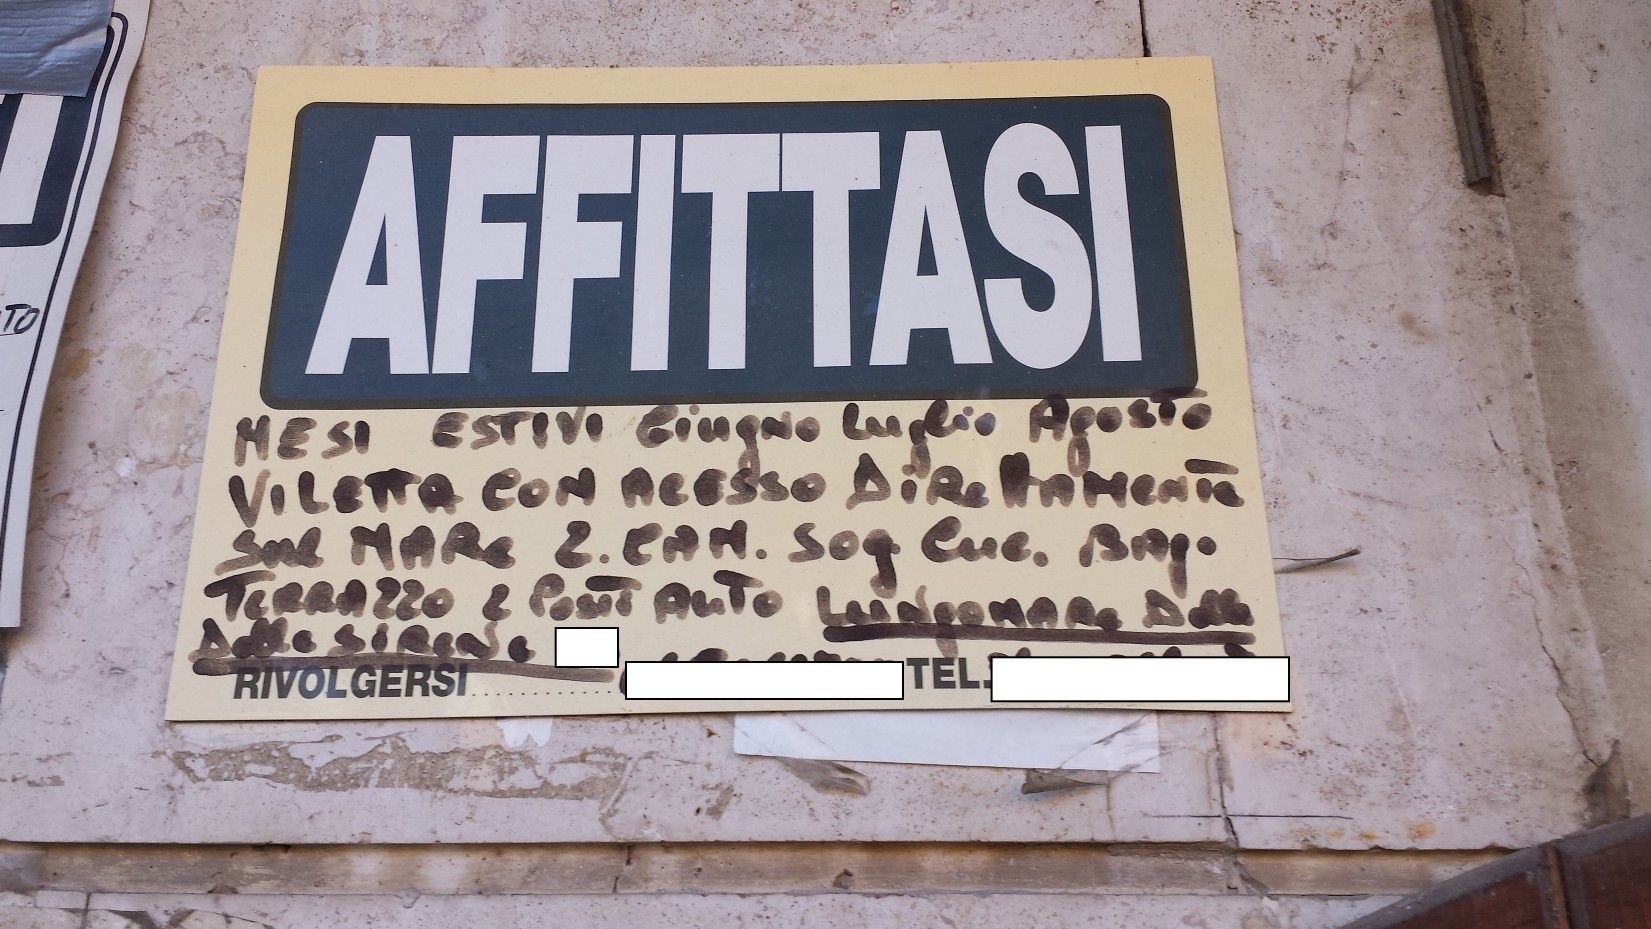 AFFITTASI
MESI ESTIVI Giugno Luglio Agosto
ViLETTA CON ACESSO DiReTTAMENTE
SUL MARE 2. CAM. Sog Cuc. BAg.
TERRAZZO 2 Posti AUTO LUNGOMARE Delle
Delle SIRENE
RIVOLGERSI TEL.
TO